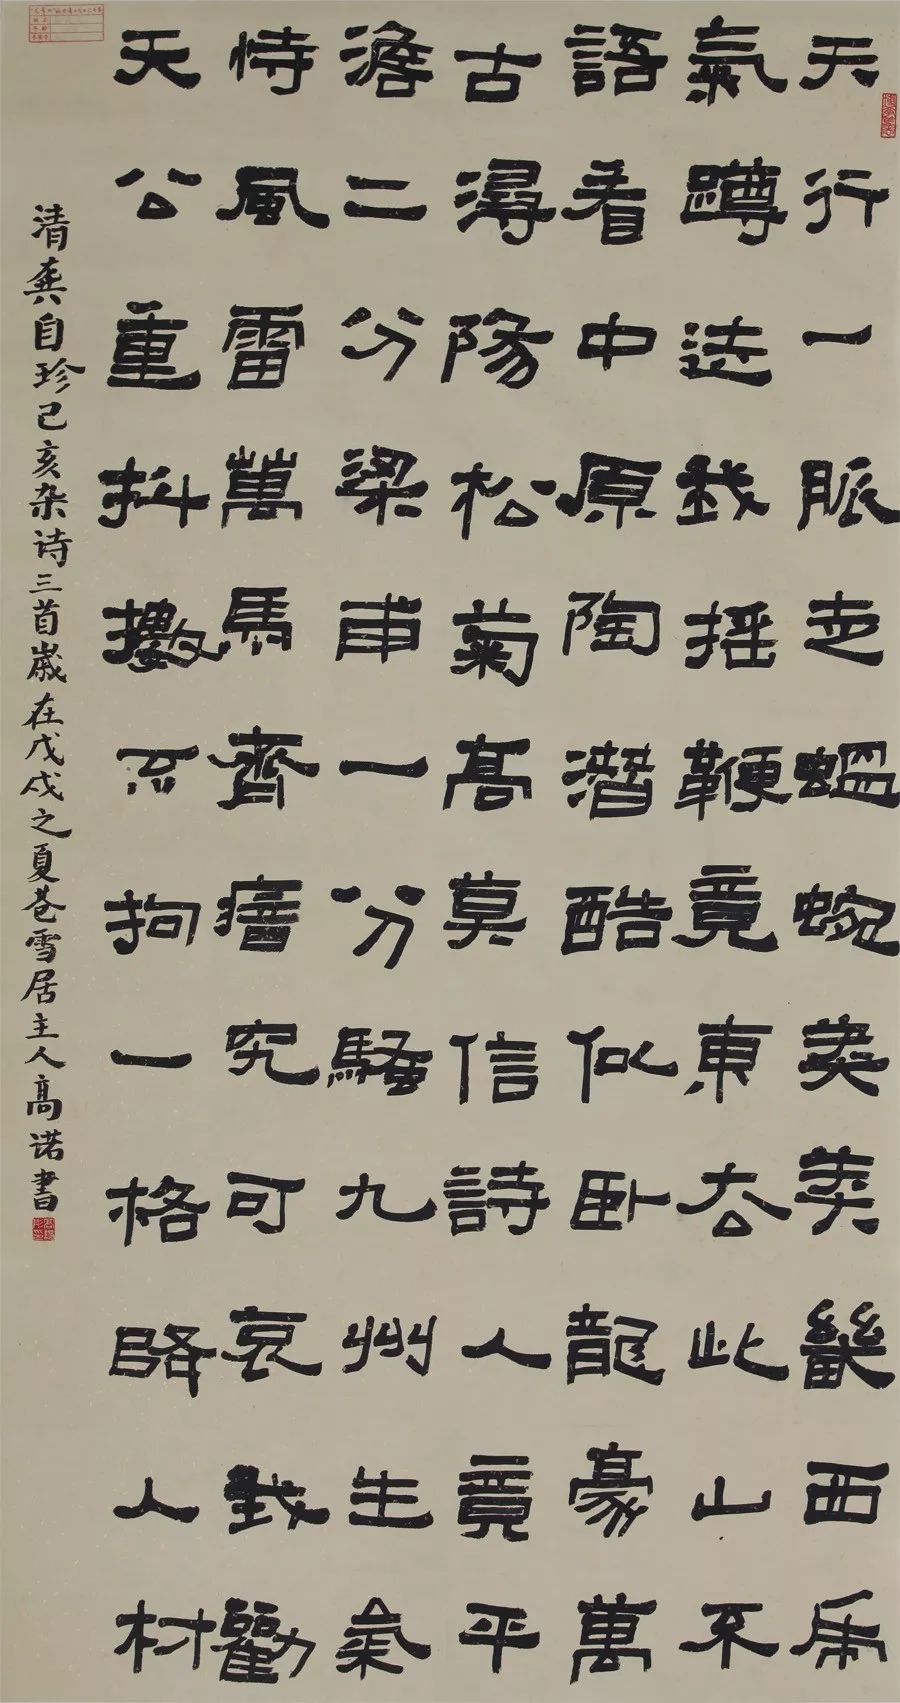 天行一脈走蝹蜿莽莽畿西虎
氣蹲送我摇鞭竟東去此山不
語看中原陶潜酷似卧龍豪萬
古潯陽松菊高莫信詩人竟平
澹二分梁甫一分騷九州生氣
恃風雷萬馬齊瘖究可哀我勸
天公重抖擻不拘一格降人材
清龚自珍己亥杂诗三首歲在戊戌之夏苍雪居主人高诺書